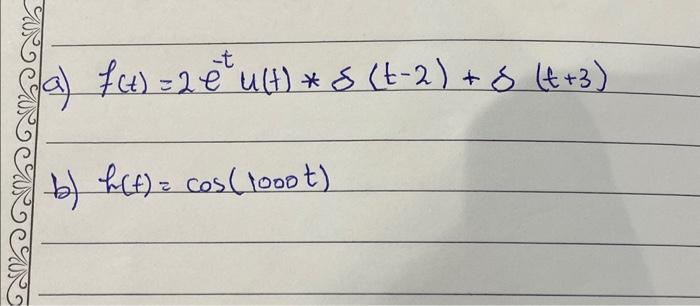 a) f(t) = 2e^-t u(t) * δ (t-2) + δ (t+3)
b) h(t) = cos(1000t)